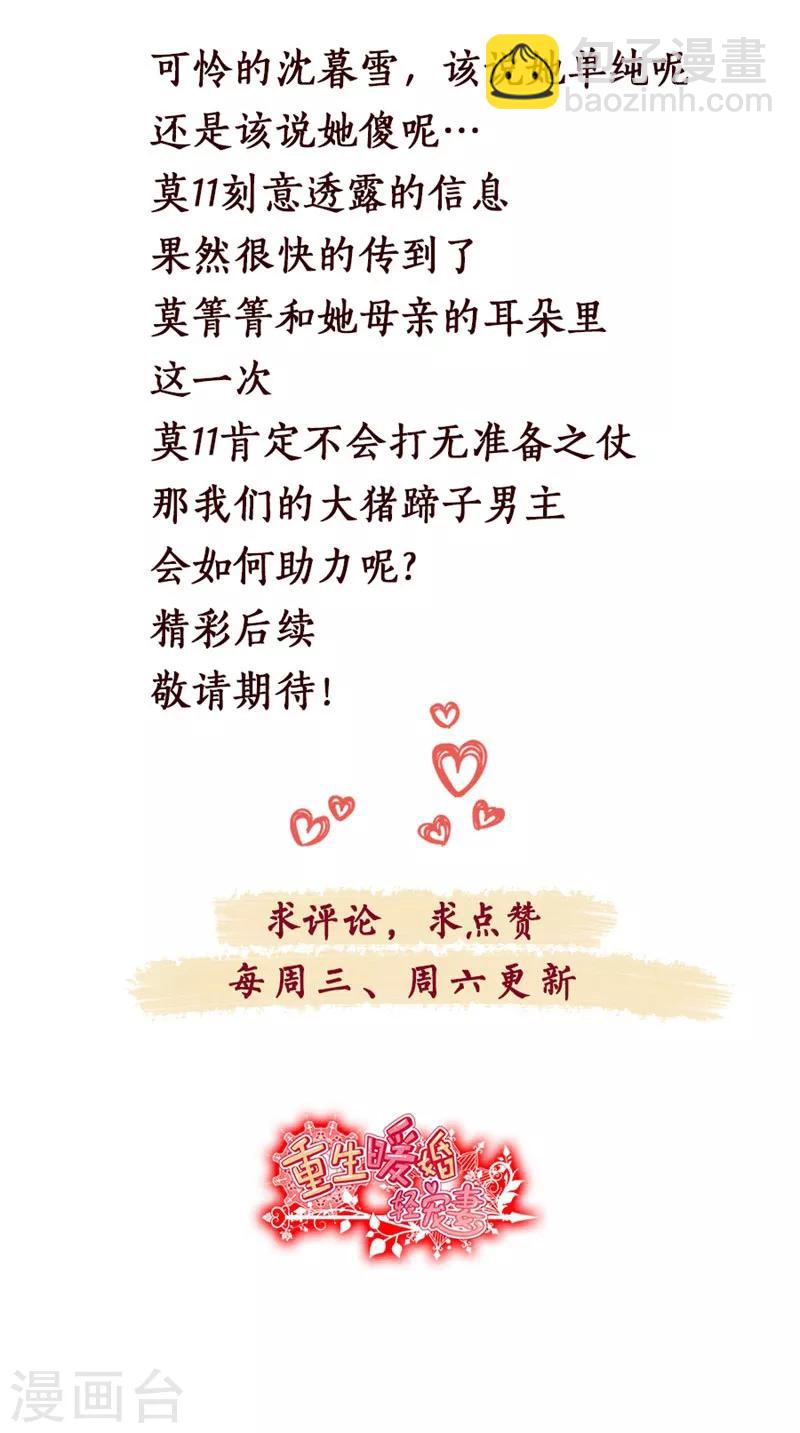 可怜的沈暮雪，该说她单纯呢
包子漫畫
baozimh.com
还是该说她傻呢…
莫11刻意透露的信息
果然很快的传到了
莫箐箐和她母亲的耳朵里
这一次
莫11肯定不会打无准备之仗
那我们的大猪蹄子男主
会如何助力呢?
精彩后续
敬请期待!
求评论，求点赞
每周三、周六更新
重生暖婚
轻宠妻
漫画台